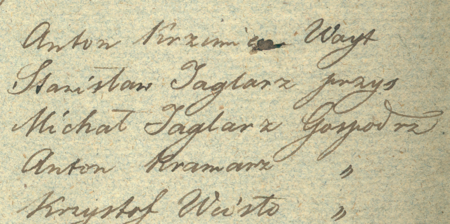 Anton Krzimien Wayt
Stanisław Taglarz przys
Michał Taglarz Gospodrz.
Anton Kramarz "
Krzystof Wcisło "